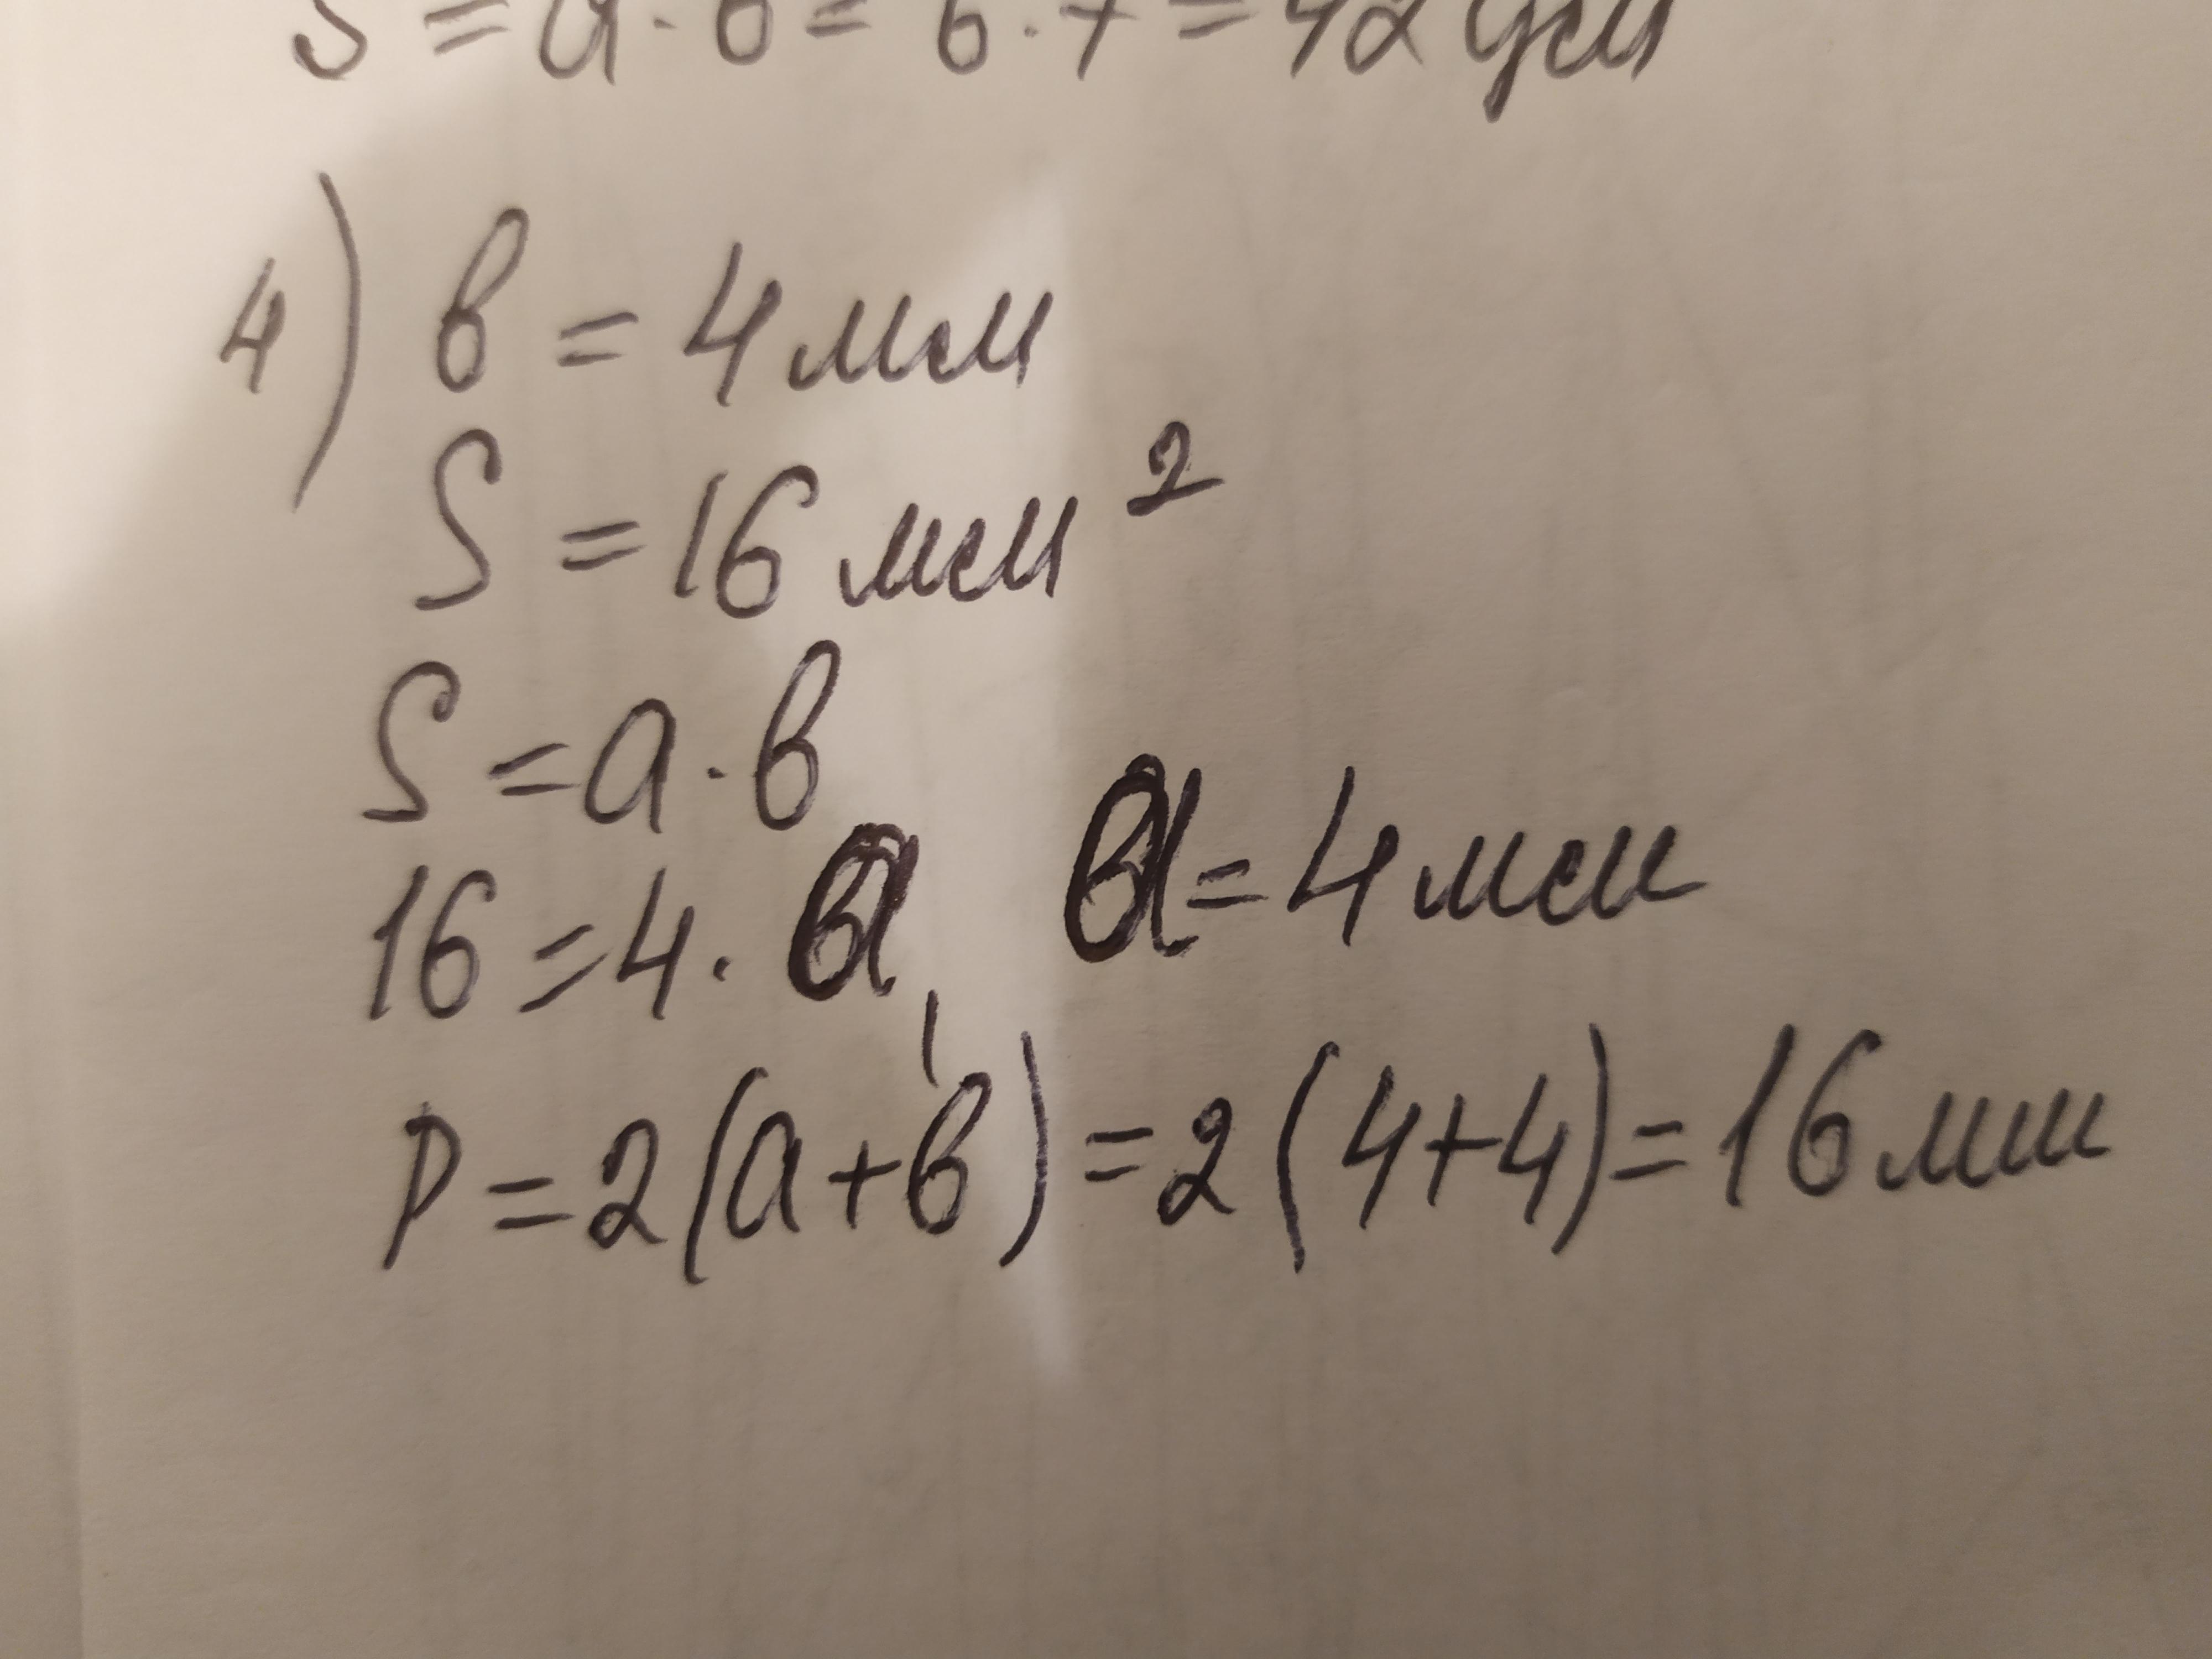 S = a · b = 6 · 7 = 42 дм
4) в = 4 мм
S = 16 мм²
S = a · в
16 = 4 · a, a = 4 мм
P = 2(a + в) = 2(4 + 4) = 16 мм